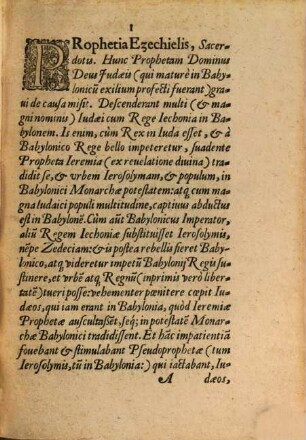 1
PRophetia Ezechielis, Sacer-
dotis. Hunc Prophetam Dominus
Deus Iudæis (qui maturè in Baby-
lonicũ exilium profecti fuerant) gra-
ui de causa misit. Descenderant multi (& ma-
gni nominis) Iudæi cum Rege Iechonia in Ba-
bylonem. Is enim, cùm Rex in Iuda esset, & à
Babylonico Rege bello impeteretur, suadente
Propheta Ieremia (ex reuelatione diuina) tra-
didit se, & vrbem Ierosolymam, & populum, in
Babylonici Monarchæ potestatem: atq́; cum ma-
gna Iudaici populi multitudine, captiuus abductus
est in Babylonẽ. Cùm aũt Babylonicus Imperator,
aliũ Regem Iechoniæ substituisset Ierosolymis,
nẽpe Zedeciam: & is postea rebellis fieret Baby-
lonico, atq; videretur impetũ Babylonij Regis su-
stinere, et vrbẽ atq; Regnũ (inprimis verò liber-
tatẽ) tueri posse: vehementer pœnitere cœpit Iu-
dæos, qui iam erant in Babylonia, quòd Ieremiæ
Prophetæ auscultassẽt, seq́; in potestatẽ Monar-
chæ Babylonici tradidissent. Et hãc impatientiã
fouebant & stimulabant Pseudoprophetæ (tum
Ierosolymis, tũ in Babylonia:) qui iactabant, Iu-
A dæos,